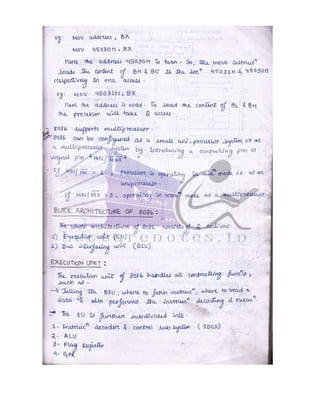 eg: MOV address, BX
MOV 45030H, BX
Here the address 45030H is even. So, the move instrucn
loads the content of BH & BL to the locn 45031H & 45030H
respectively in one access.
eg: MOV 45031H, BX
Here the address is odd. To load the content of BL & BH
the processor will take 2 access.
8086 supports multiprocessor.
8086 can be configured as a small uni-processor system or as
a multiprocessor system by introducing a controlling pin or
signal pin "MN/MX".
If MN/MX = 1, processor is operating in min mode i.e. as an
uniprocessor.
If MN/MX = 0, operating in max mode as a multiprocessor
BLOCK ARCHITECTURE OF 8086:
The whole architecture of 8086 consists of 2 sections.
1) Execution unit (EU)
2) Bus interfacing unit (BIU)
EXECUTION UNIT:
The execution unit of 8086 handles all controlling funcns,
such as -
→ Telling the BIU, where to fetch instrucn, where to read a
data & also performs the instrucn decoding & execun.
→ The EU is further subdivided into -
1. Instrucn decoder & control sub system (IDCS)
2. ALU
3. Flag Register
4. GPR